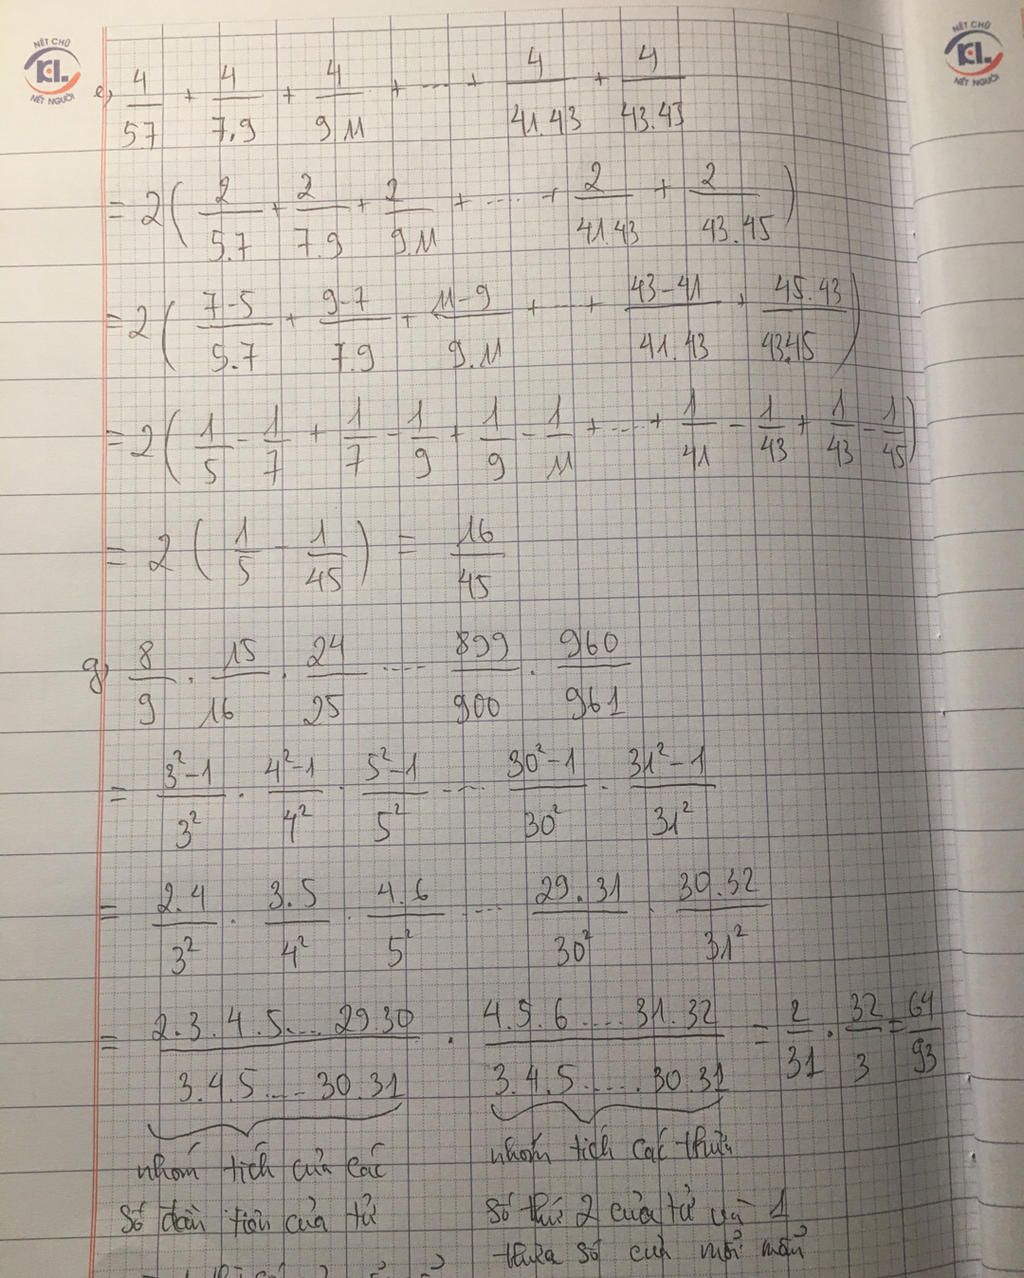 NÉT CHỮ
KL
NẾT NGƯỜI
NÉT CHỮ
KL
NẾT NGƯỜI
e, 4/57 + 4/7.9 + 4/9.11 + ... + 4/41.43 + 4/43.43
= 2( 2/5.7 + 2/7.9 + 2/9.11 + ... + 2/41.43 + 2/43.45 )
= 2( 7-5/5.7 + 9-7/7.9 + 11-9/9.11 + ... + 43-41/41.43 + 45.43/43.45 )
= 2( 1/5 - 1/7 + 1/7 - 1/9 + 1/9 - 1/11 + ... + 1/41 - 1/43 + 1/43 - 1/45 )
= 2 ( 1/5 - 1/45 ) = 16/45
g, 8/9 . 15/16 . 24/25 .... 899/900 . 960/961
= 3²-1/3² . 4²-1/4² . 5²-1/5² .... 30²-1/30² . 31²-1/31²
= 2.4/3² . 3.5/4² . 4.6/5² .... 29.31/30² . 30.32/31²
= 2.3.4.5....29.30/3.4.5....30.31 . 4.5.6....31.32/3.4.5.....30.31 = 2/31 . 32/3 = 64/93
nhóm tích của các
số đầu tiên của tử
nhóm tích các thừa
số thứ 2 của tử và 1
thừa số của mỗi mẫu